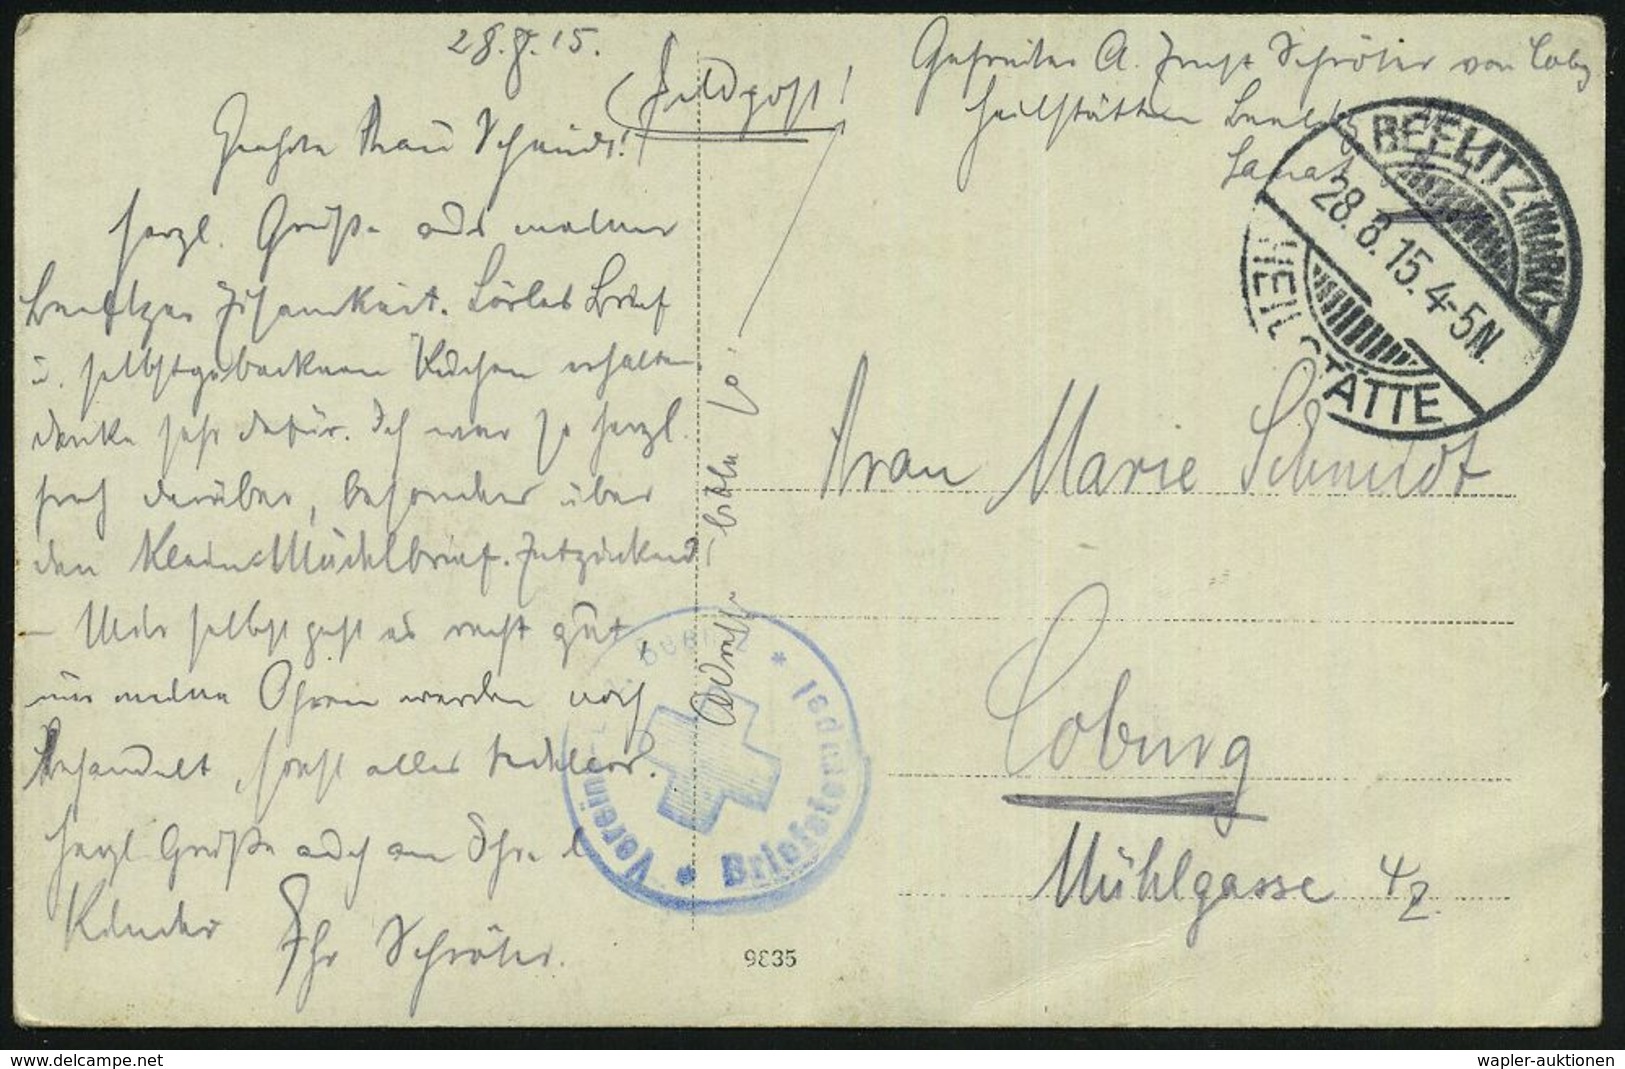 28.8.15.
(Feldpost!
Geehrte Frau Schmidt!
herzl. Grüße aus meiner
Beelitzer Einsamkeit. Lörles Brief
u. selbstgebackenen Kuchen erhalten,
danke sehr dafür. Ich war so herzl.
froh darüber, besonders über
den Klein-Mädelbrief. Entzückend
– Mir selbst geht es recht gut
nur meine Ohren werden noch
behandelt, sonst alles tadellos.
Herzl Grüße auch an Ihre l
Kinder Ihr Schröter.
Gefreiter A. Ernst Schröter von Cobg
Heilstätten Beelitz
Sanat
BEELITZ (MARK)
28.8.15. 4-5N.
HEILSTÄTTE
Frau Marie Schmidt
Coburg
Mühlgasse 4
Adresse
Verein
Briefstempel
9835
delcampe.net
wapler-auktionen